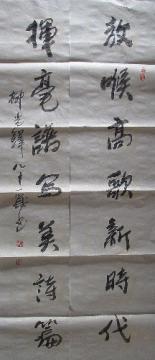 喉高歌新時代
揮毫譜寫美詩篇
八十一歲書